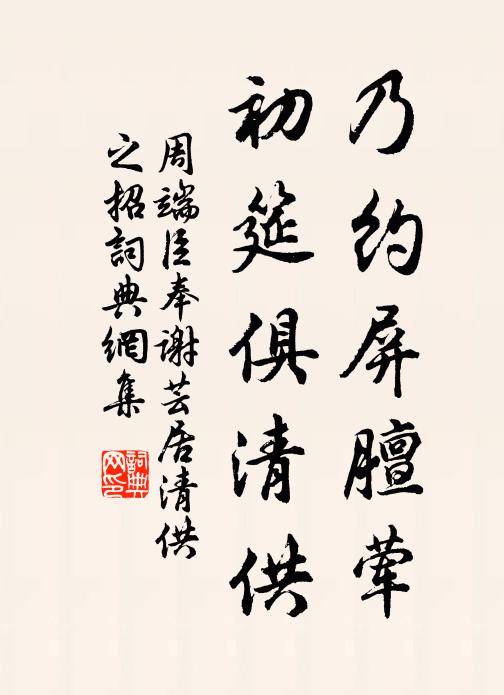 乃約屏膻葷
初筵俱清供
周端臣奉謝芸居清供
之招詞典網集
詞典
网印